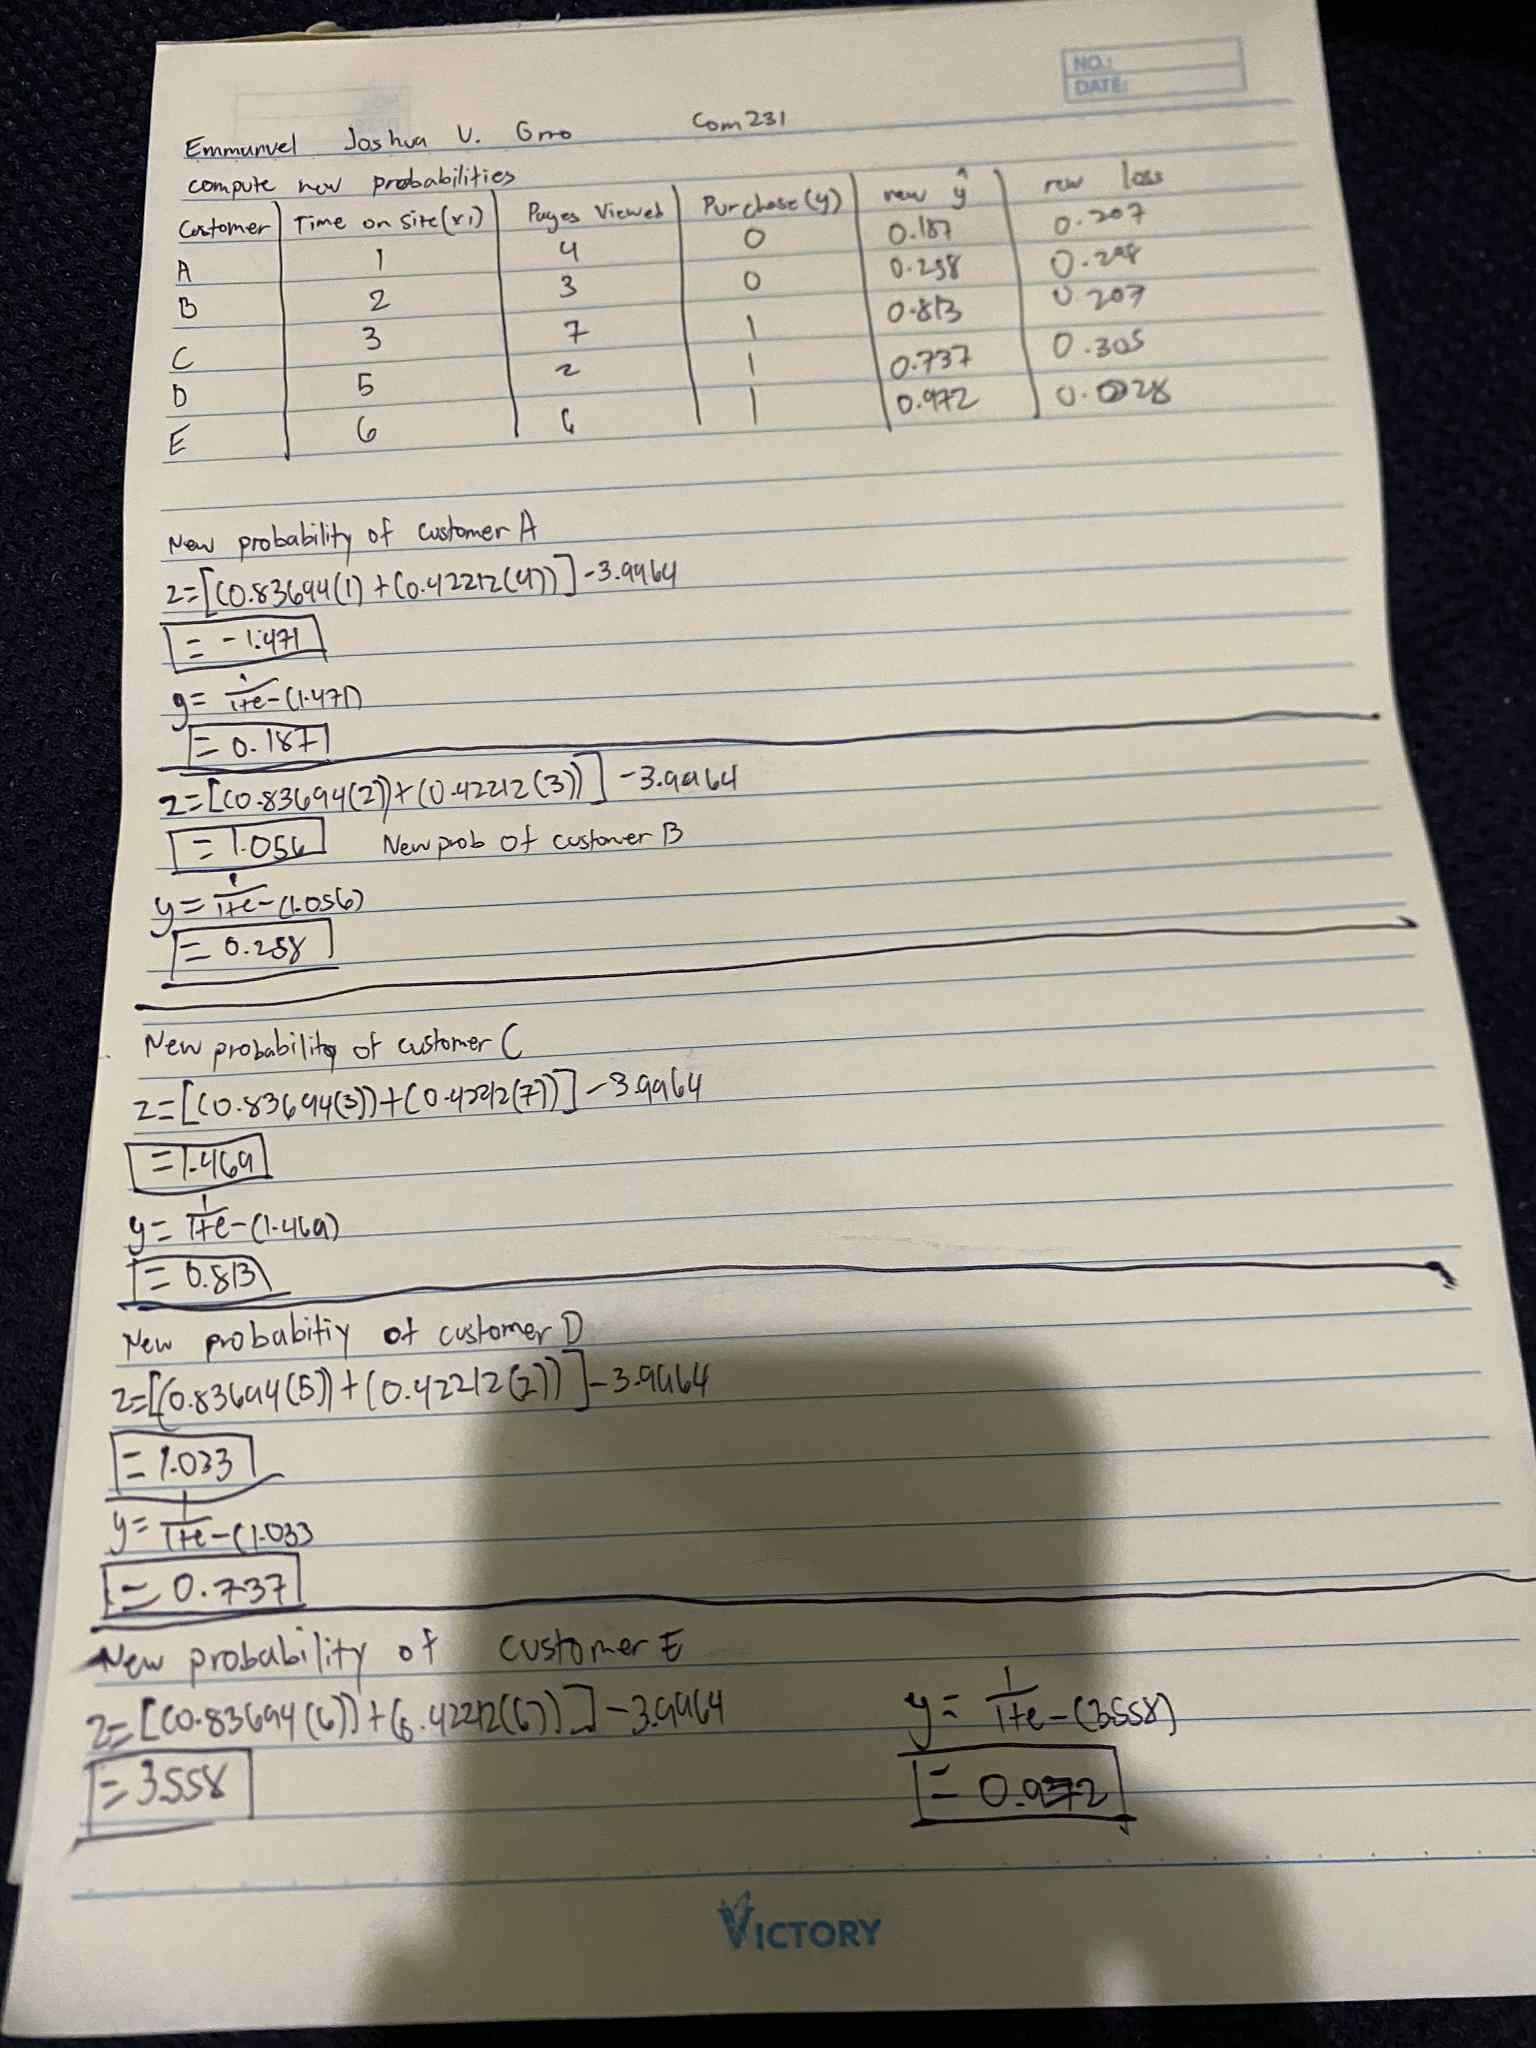 NO.:
DATE:
Emmanuel Joshua V. Com231
compute new probabilities
Customer Time on site(x1) Pages Viewed Purchase(y) new ŷ new loss
A 1 4 0 0.187 0.207
B 2 3 0 0.258 0.298
C 3 7 1 0.813 0.207
D 5 2 1 0.737 0.305
E 6 6 1 0.972 0.028
New probability of customer A
z=[(0.83694(1)+(0.42212(4))]-3.9964
= -1.471
y= 1/1+e-(1.471)
= 0.187
z=[(0.83694(2))+(0.42212(3))]-3.9964
= 1.056 New prob of customer B
y= 1/1+e-(1.056)
= 0.258
New probability of customer C
z=[(0.83694(3))+(0.42212(7))]-3.9964
=1.469
y= 1/1+e-(1.469)
= 0.813
New probabitiy of customer D
z=[(0.83694(5))+(0.42212(2))]-3.9964
= 1.033
y= 1/1+e-(1.033
= 0.737
New probability of customer E
z=[(0.83694(6))+(0.42212(6))]-3.9964 y= 1/1+e-(3.558)
= 3.558 = 0.972
VICTORY